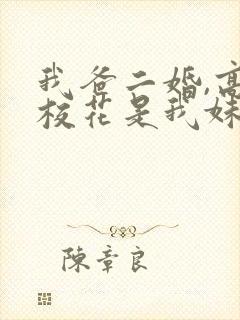 我爸二婚,高
校花是我妹
陳章良